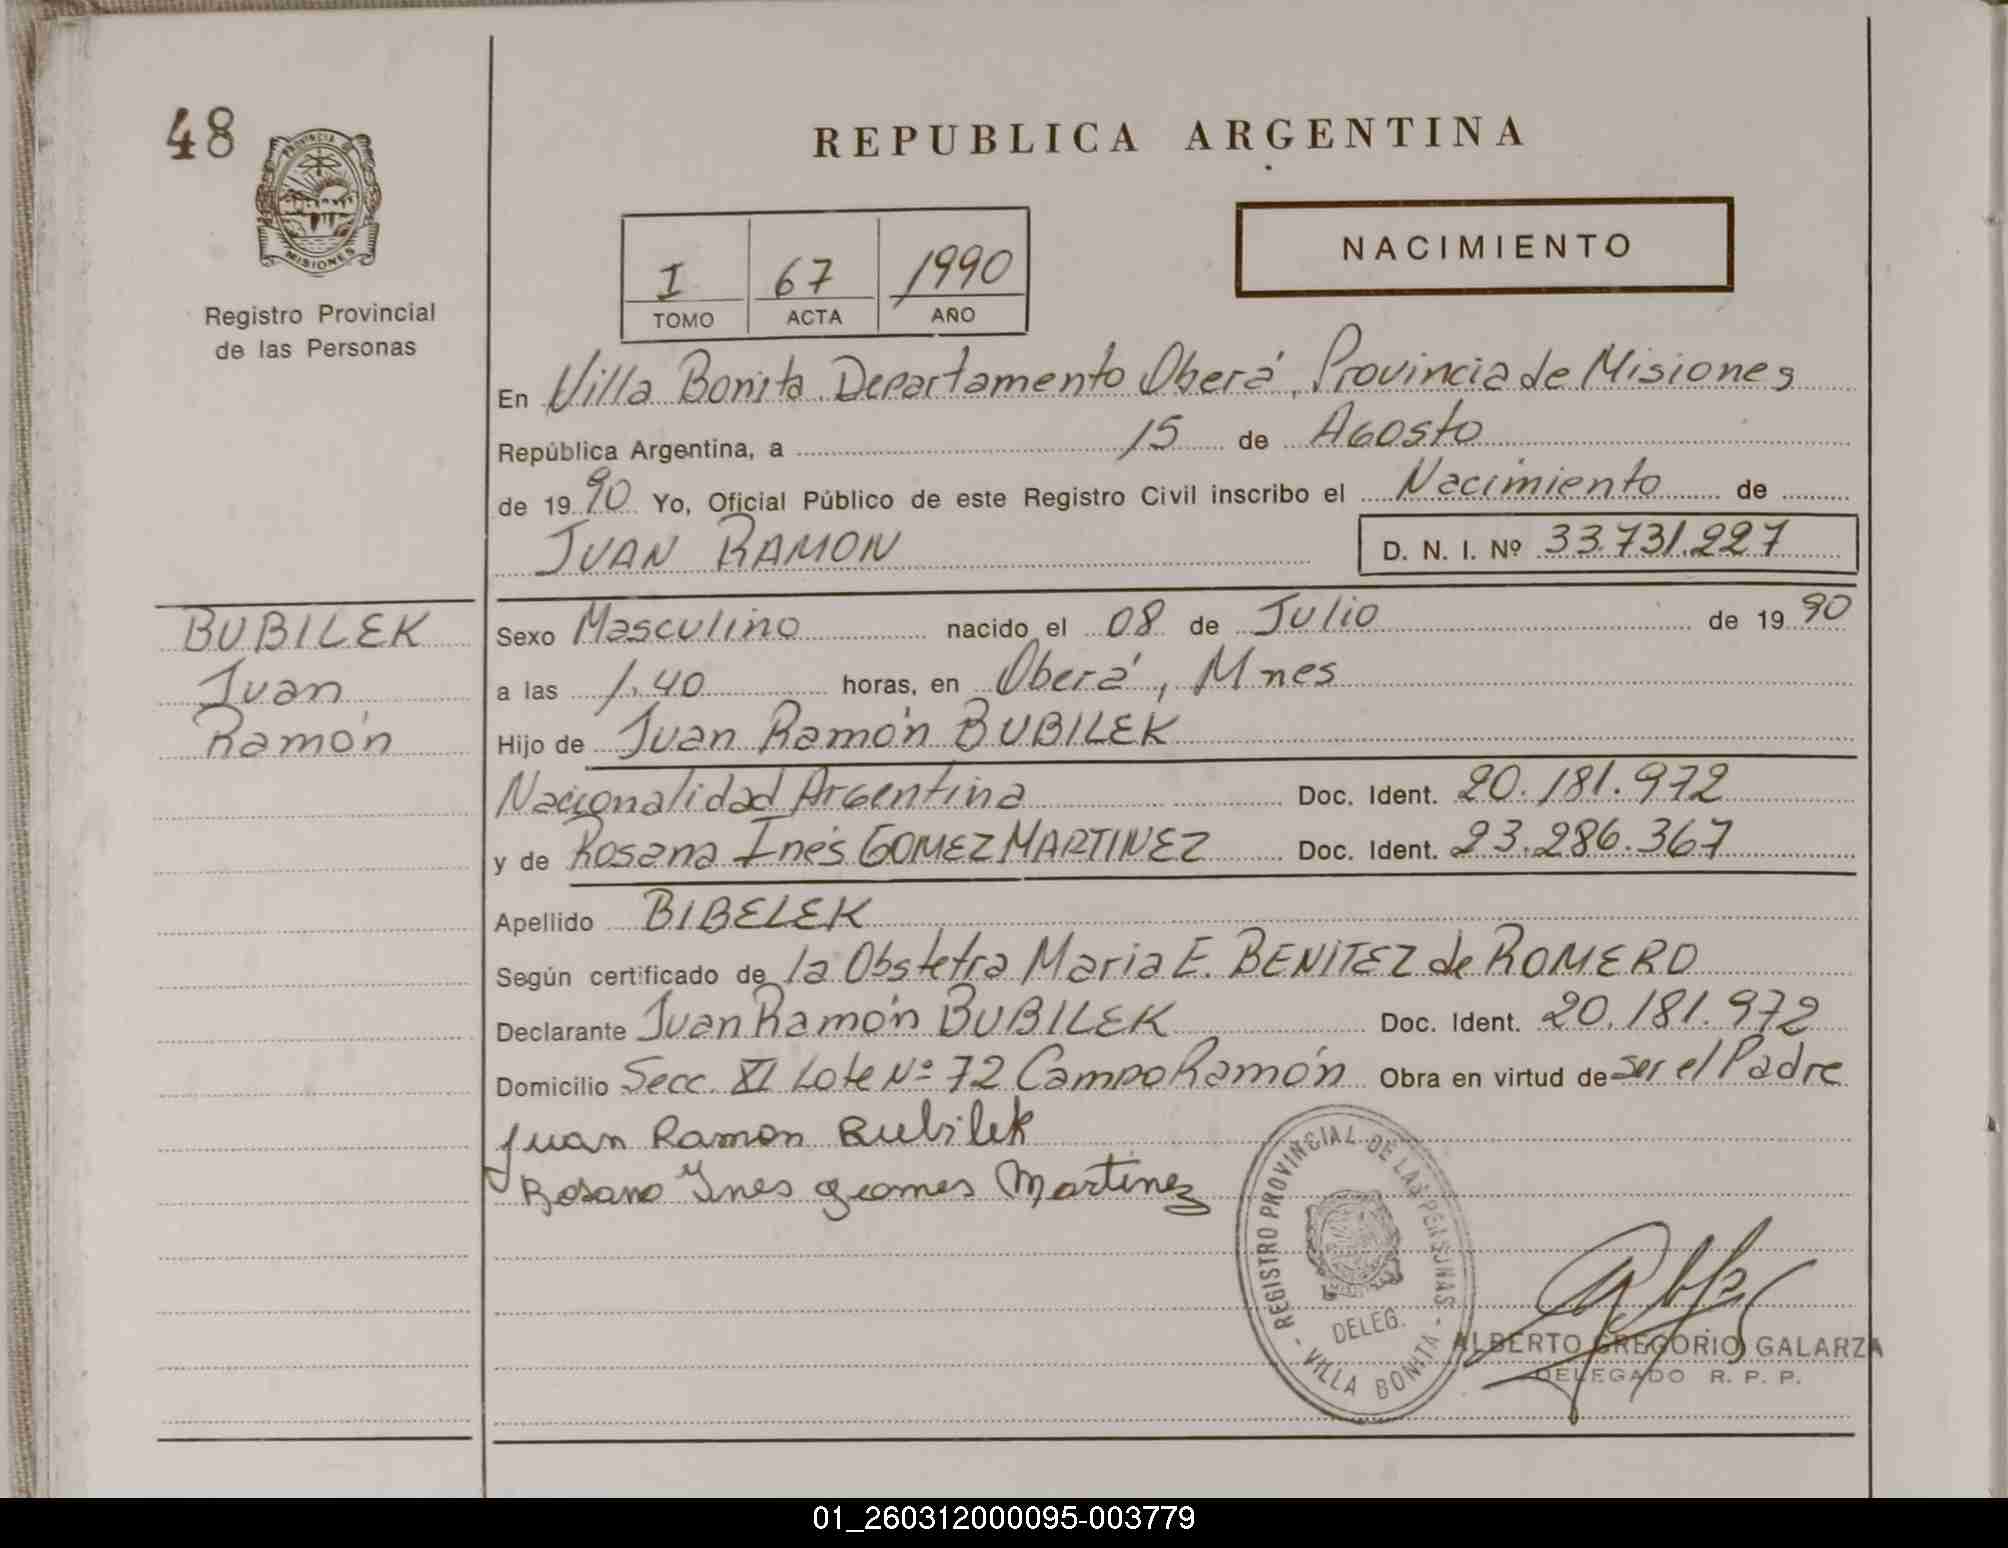 48
PROVINCIA DE
MISIONES
Registro Provincial
de las Personas
REPUBLICA ARGENTINA
NACIMIENTO
I 67 1990
TOMO ACTA AÑO
En Villa Bonita Departamento Oberá, Provincia de Misiones
República Argentina, a 15 de Agosto
de 1990 Yo, Oficial Público de este Registro Civil inscribo el Nacimiento de
JUAN RAMON D. N. I. Nº 33.731.227
BUBILEK
Juan
Ramón
Sexo Masculino nacido el 08 de Julio de 1990
a las 1.40 horas, en Oberá, Mnes
Hijo de Juan Ramón BUBILEK
Nacionalidad Argentina Doc. Ident. 20.181.972
y de Rosana Inés GOMEZ MARTINEZ Doc. Ident. 23.286.367
Apellido BIBELEK
Según certificado de la Obstetra Maria E. BENITEZ de ROMERO
Declarante Juan Ramón BUBILEK Doc. Ident. 20.181.972
Domicilio Secc. XI Lote Nº 72 Campo Ramón Obra en virtud de ser el Padre
Juan Ramon Bubilek
Rosana Ines gomes Martinez
- REGISTRO PROVINCIAL DE LAS PERSONAS -
DELEG.
VILLA BONITA
ALBERTO GREGORIO GALARZA
DELEGADO R. P. P.
01_260312000095-003779